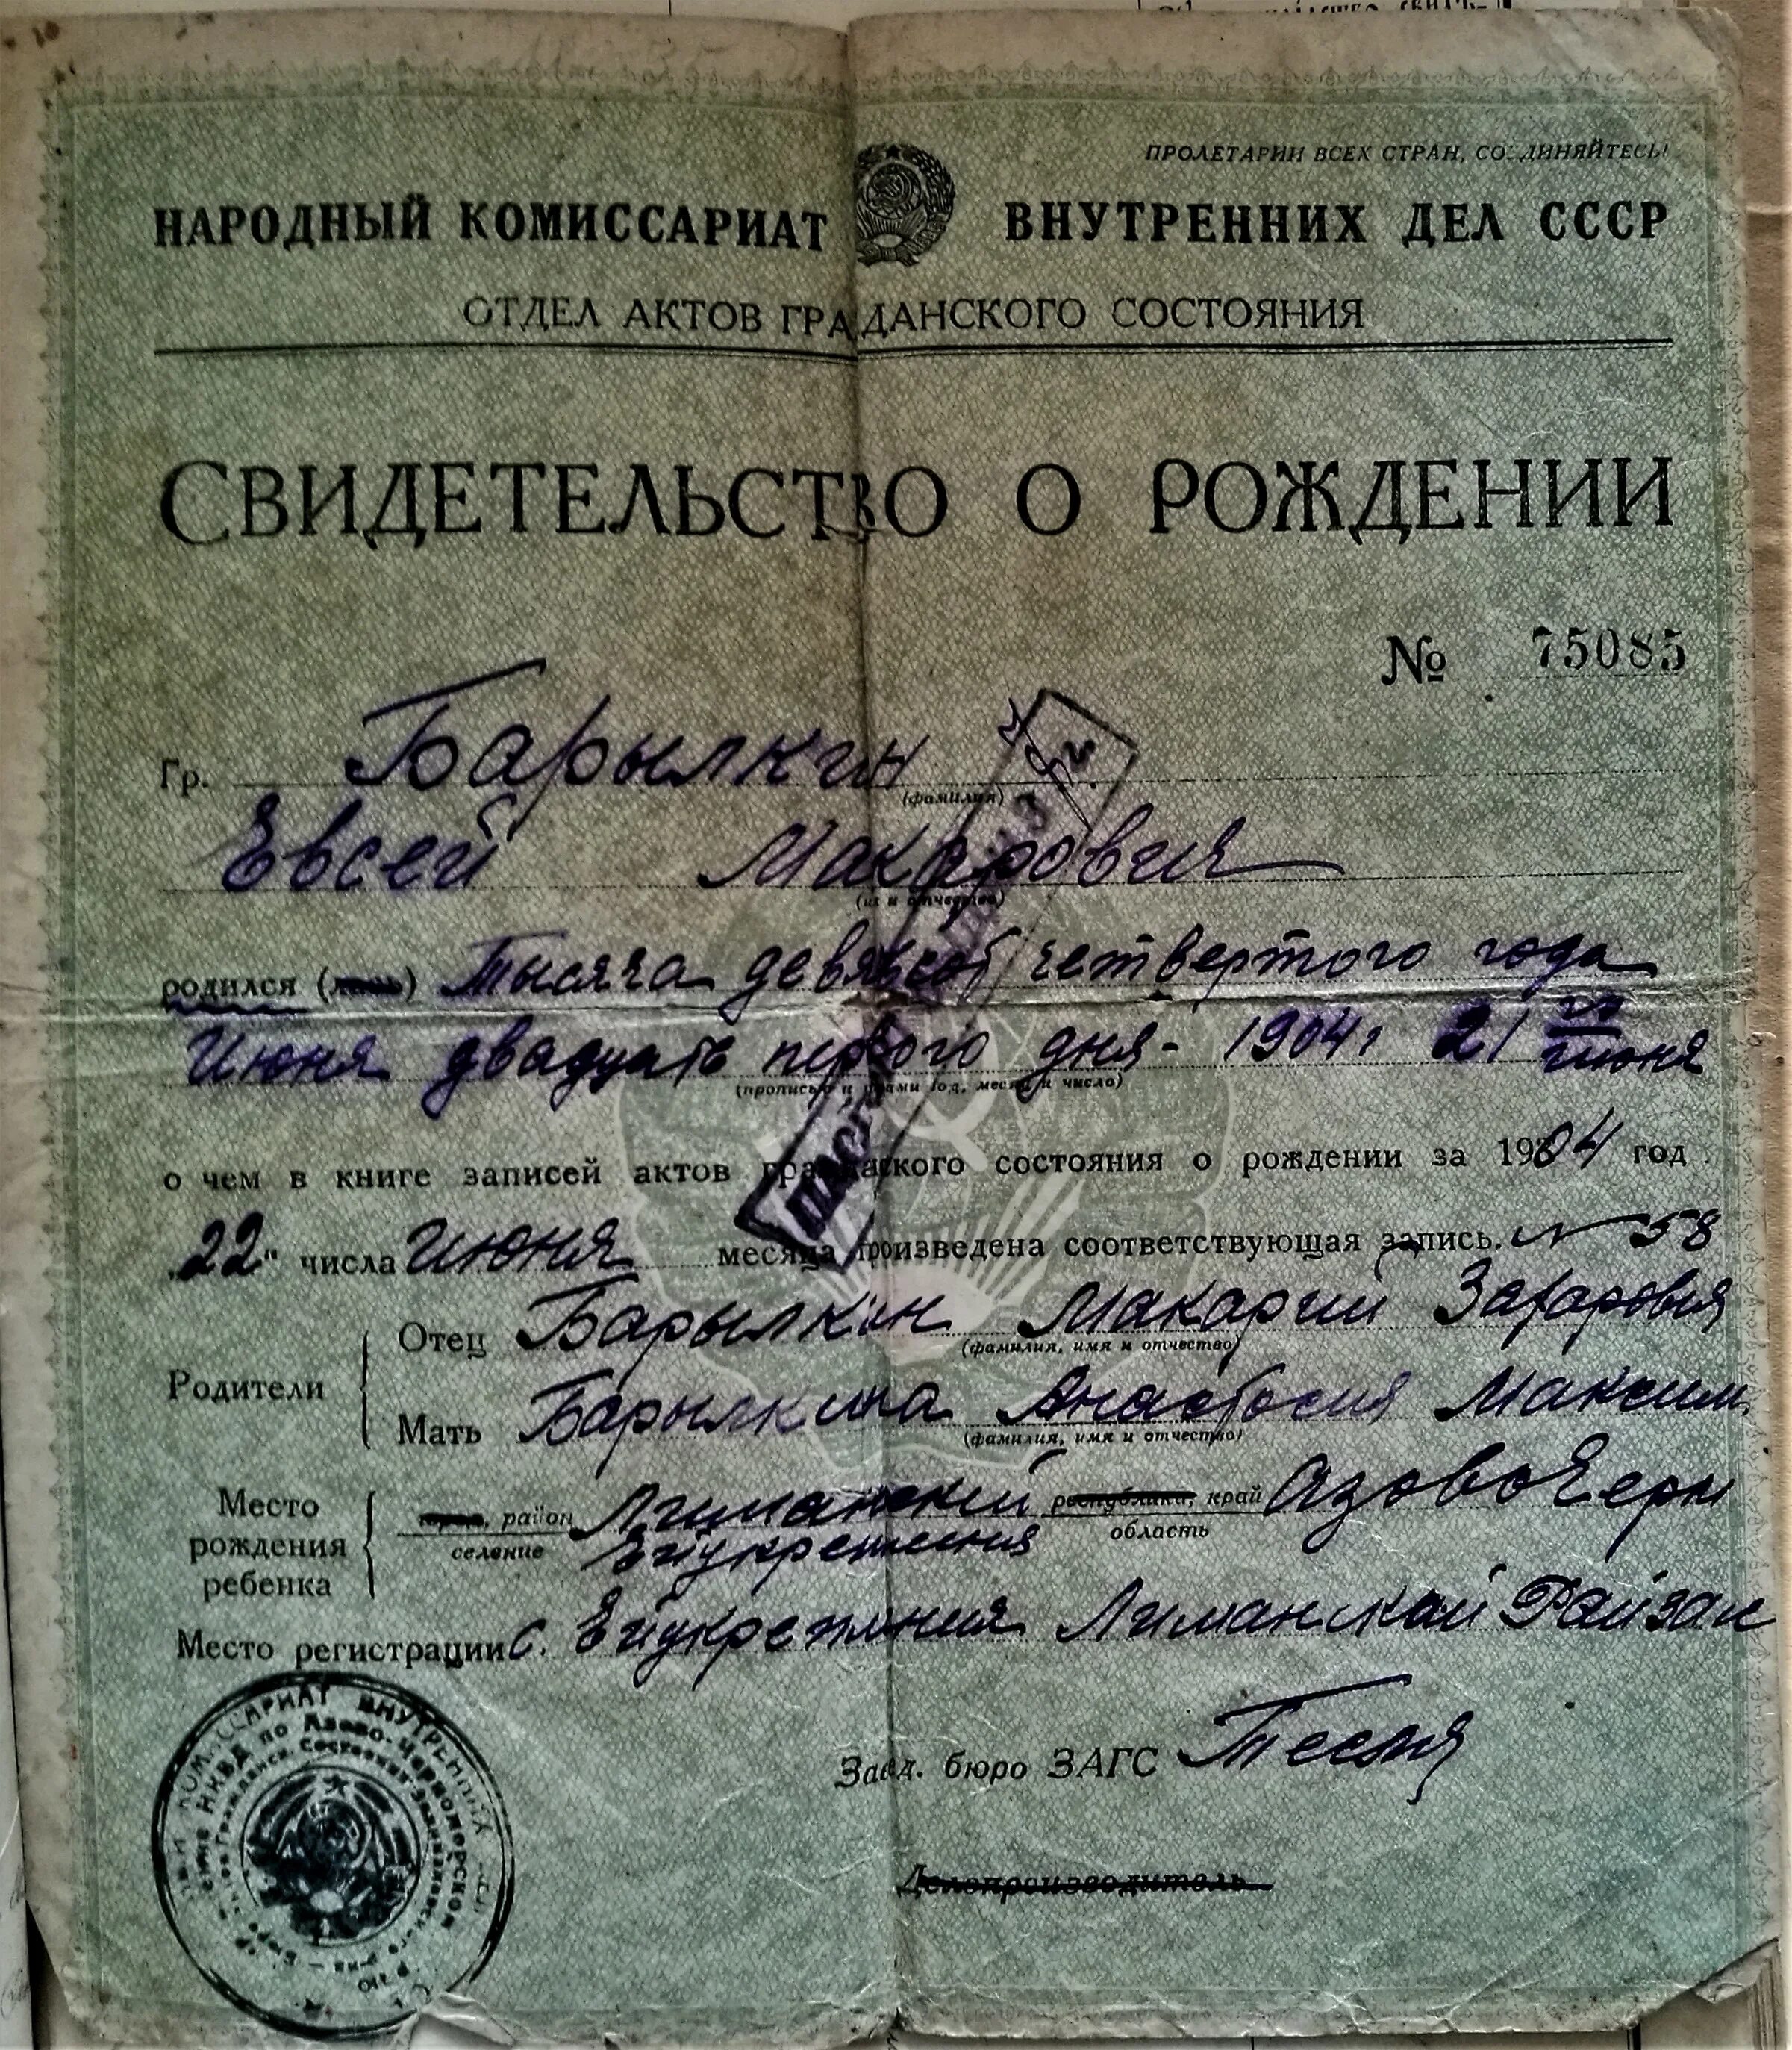 ПРОЛЕТАРИИ ВСЕХ СТРАН, СОЕДИНЯЙТЕСЬ!
НАРОДНЫЙ КОМИССАРИАТ ВНУТРЕННИХ ДЕЛ СССР
ОТДЕЛ АКТОВ ГРАДАНСКОГО СОСТОЯНИЯ
СВИДЕТЕЛЬСТВО О РОЖДЕНИИ
№ 75085
Гр. Барылкин
(фамилия)
Евсей Макарович
(имя и отчество)
родился (лась) Тысяча девятьсот четвертого года
Июня двадцать первого дня - 1904 г 21 го июня
(прописью и цифрами год, месяц и число)
о чем в книге записей актов гражданского состояния о рождении за 1904 год
„22“ числа Июня месяца произведена соответствующая запись. № 58
Родители
Отец Барылкин Макарий Захарович
(фамилия, имя и отчество)
Мать Барылкина Анастасия Максим.
(фамилия, имя и отчество)
Место рождения ребенка
город, район Лиманский республика, край АзовоЧерн
селение Ейукрепления область
Место регистрации с. Ейукрепления Лиманский Райзаг
Завд. бюро ЗАГС
Делопроизводитель